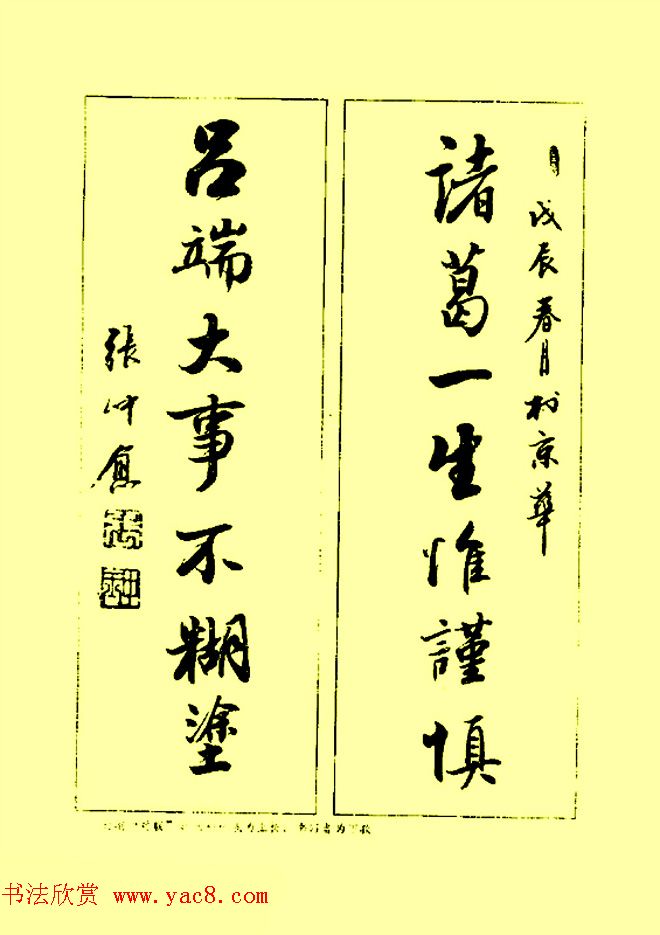 戊辰春月於京華
諸葛一生惟謹慎
吕端大事不糊塗
張仲愈
书法欣赏 www.yac8.com